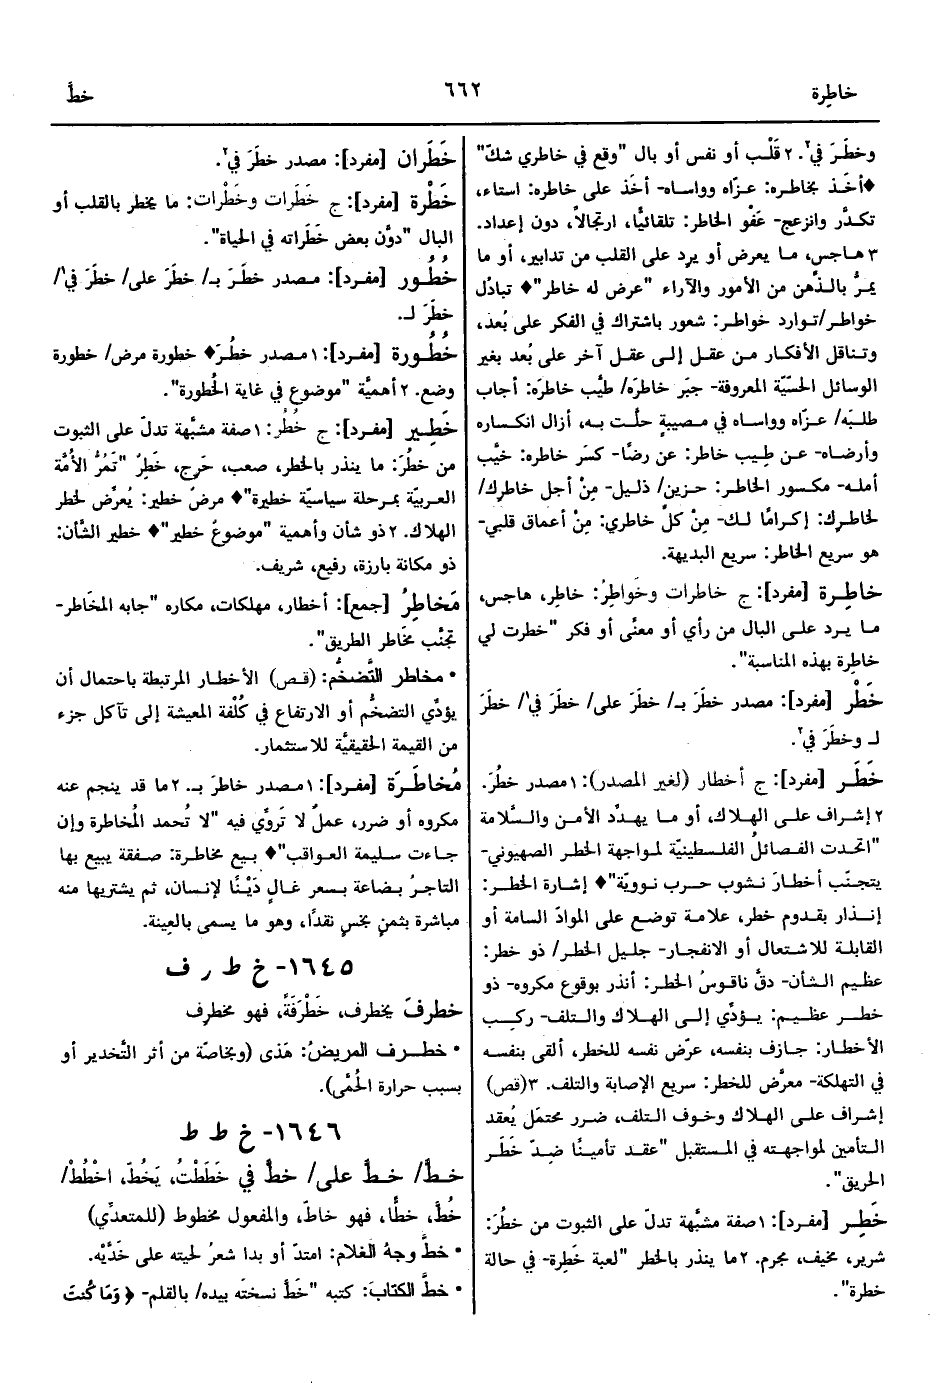 خاطِرة
٦٦٢
خطَّ
وخطَرَ في٢. ٢ قَلْب أو نفس أو بال "وقع في خاطري شكّ"
♦أخَذ بخاطره: عزّاه وواساه- أخَذ على خاطره: استاء،
تكدَّر وانزعج- عَفْو الخاطر: تلقائيًّا، ارتجالاً، دون إعداد.
٣ هاجس، ما يعرض أو يرد على القلب من تدابير، أو ما
يمرُّ بالذِّهن من الأمور والآراء "عرض له خاطر"♦ تبادُل
خواطر/ توارد خواطر: شعور باشتراك في الفكر على بُعد،
وتناقل الأفكار من عقل إلى عقل آخر على بُعد بغير
الوسائل الحسّيّة المعروفة- جبَر خاطرَه/ طيَّب خاطرَه: أجاب
طلبَه/ عزّاه وواساه في مصيبةٍ حلَّت به، أزال انكساره
وأرضاه- عن طِيب خاطر: عن رضًا- كسَر خاطره: خيَّب
أمله- مكسور الخاطر: حزين/ ذليل- مِنْ أجل خاطرك/
لخاطرك: إكرامًا لك- مِنْ كلِّ خاطري: مِنْ أعماق قلبي-
هو سريع الخاطر: سريع البديهة.
خاطِرة [مفرد]: ج خاطرات وخَواطِرُ: خاطِر، هاجس،
ما يرد على البال من رأي أو معنًى أو فكر "خطرت لي
خاطرة بهذه المناسبة".
خَطْر [مفرد]: مصدر خطَرَ بـ/ خطَرَ على/ خطَرَ في١/ خطَرَ
لـ وخطَرَ في٢.
خَطَر [مفرد]: ج أخطار (لغير المصدر): ١مصدر خطُرَ.
٢ إشراف على الهلاك، أو ما يهدِّد الأمن والسَّلامة
"اتّحدت الفصائلُ الفلسطينيّة لمواجهة الخطر الصهيوني-
يتجنّب أخطارَ نشوب حرب نوويّة"♦ إشارة الخطر:
إنذار بقدوم خطر، علامة توضع على الموادّ السامة أو
القابلة للاشتعال أو الانفجار- جليل الخطر/ ذو خطر:
عظيم الشأن- دقَّ ناقوسُ الخطر: أنذر بوقوع مكروه- ذو
خطر عظيم: يؤدِّي إلى الهلاك والتلف- ركب
الأخطار: جازف بنفسه، عرّض نفسه للخطر، ألقى بنفسه
في التهلكة- معرَّض للخطر: سريع الإصابة والتلف. ٣(قص)
إشراف على الهلاك وخوف التلف، ضرر محتمَل يُعقد
التأمين لمواجهته في المستقبل "عقد تأمينًا ضدّ خَطَر
الحريق".
خَطِر [مفرد]: ١صفة مشبَّهة تدلّ على الثبوت من خطُرَ:
شرير، مخيف، مجرم. ٢ما ينذر بالخطر "لعبة خَطِرة- في حالة
خطرة".
خَطَران [مفرد]: مصدر خطَرَ في٢.
خَطْرة [مفرد]: ج خَطَرات وخَطْرات: ما يخطر بالقلب أو
البال "دوَّن بعض خَطَراته في الحياة".
خُطُور [مفرد]: مصدر خطَرَ بـ/ خطَرَ على/ خطَرَ في١/
خطَرَ لـ.
خُطُورة [مفرد]: ١مصدر خطُرَ♦ خطورة مرض/ خطورة
وضع. ٢ أهميَّة "موضوع في غاية الخُطورة".
خَطِير [مفرد]: ج خُطُر: ١صفة مشبَّهة تدلّ على الثبوت
من خطُرَ: ما ينذر بالخطر، صعب، حَرِج، خَطِرٌ "تَمُرُّ الأُمَّة
العربيّة بمرحلة سياسيّة خطيرة"♦ مرضٌ خطير: يُعرِّض لخطر
الهلاك. ٢ ذو شأن وأهمية "موضوعٌ خطير"♦ خطير الشَّأن:
ذو مكانة بارزة، رفيع، شريف.
مَخاطِرُ [جمع]: أخطار، مهلكات، مكاره "جابه المخَاطر-
تجنَّب مخَاطر الطريق".
• مخاطر التَّضخُّم: (قص) الأخطار المرتبطة باحتمال أن
يؤدِّي التضخُّم أو الارتفاع في كُلْفة المعيشة إلى تآكل جزء
من القيمة الحقيقيَّة للاستثمار.
مُخاطَرَة [مفرد]: ١مصدر خاطرَ بـ. ٢ما قد ينجم عنه
مكروه أو ضرر، عملٌ لا تَروِّي فيه "لا تُحمد المُخاطرة وإن
جاءت سليمة العواقب"♦ بيع مخاطرة: صفقة يبيع بها
التاجرُ بضاعة بسعر غالٍ دَيْنًا لإنسان، ثم يشتريها منه
مباشرة بثمنٍ بخسٍ نقدًا، وهو ما يسمى بالعِينة.
١٦٤٥- خ ط ر ف
خطرفَ يخطرف، خَطْرَفَةً، فهو مخطرِف
• خطرف المريضُ: هَذى (وبخاصّة من أثر التَّخدير أو
بسبب حرارة الحُمَّى).
١٦٤٦- خ ط ط
خطَّ/ خطَّ على/ خطَّ في خَطَطْتُ، يَخُطّ، اخْطُطْ/
خُطَّ، خطًّا، فهو خاطّ، والمفعول مخطوط (للمتعدِّي)
• خطَّ وجهُ الغلام: امتدّ أو بدا شعرُ لحيته على خَدَّيْه.
• خطَّ الكتابَ: كتبه "خَطَّ نسختَه بيده/ بالقلم- ﴿ وَمَا كُنتَ